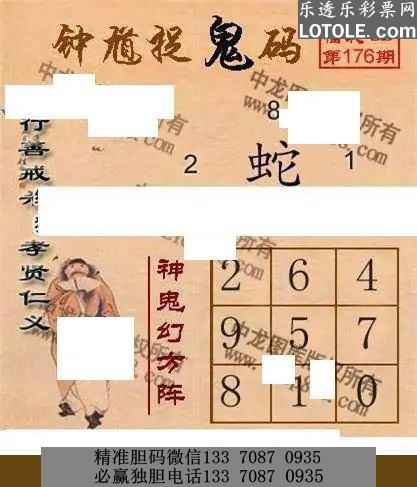 乐透乐彩票网
LOTOLE.COM
钟馗捉鬼码
第176期
8
2 蛇 1
行善戒
孝贤仁义
神鬼幻方阵
2 6 4
9 5 7
8 1 0
中龙图库版权所有
精准胆码微信133 7087 0935
必赢独胆电话133 7087 0935